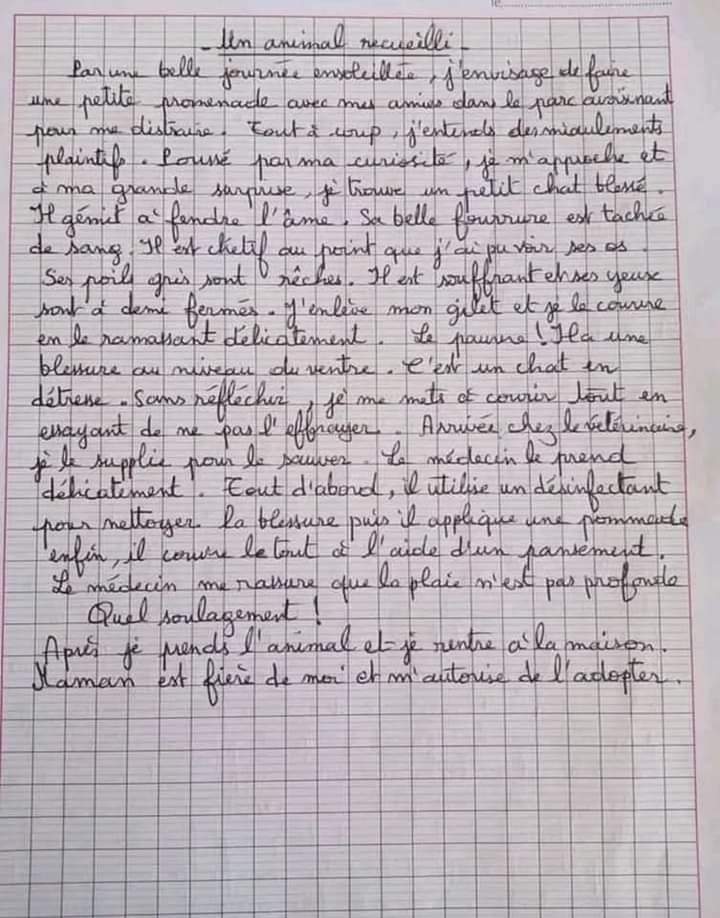 - Un animal recueilli -
Par une belle journée ensoleillée, j'envisage de faire
une petite promenade avec mes amies dans le parc avoisinant
pour me distraire. Tout à coup, j'entends des miaulements
plaintifs. Poussé par ma curiosité, je m'approche et
à ma grande surprise, je trouve un petit chat blessé.
Il gémit à fendre l'âme. Sa belle fourrure est tachée
de sang. Il est chétif au point que j'ai pu voir ses os.
Ses poils gris sont rêches. Il est souffrant et ses yeux
sont à demi fermés. J'enlève mon gilet et je le couvre
en le ramassant délicatement. Le pauvre ! Il a une
blessure au niveau du ventre. C'est un chat en
détresse. Sans réfléchir, je me mets à courir tout en
essayant de ne pas l'effrayer. Arrivée chez le vétérinaire,
je le supplie pour le sauver. Le médecin le prend
délicatement. Tout d'abord, il utilise un désinfectant
pour nettoyer la blessure puis il applique une pommade
enfin, il couvre le tout à l'aide d'un pansement.
Le médecin me rassure que la plaie n'est pas profonde
Quel soulagement !
Après je prends l'animal et je rentre à la maison.
Maman est fière de moi et m'autorise de l'adopter.